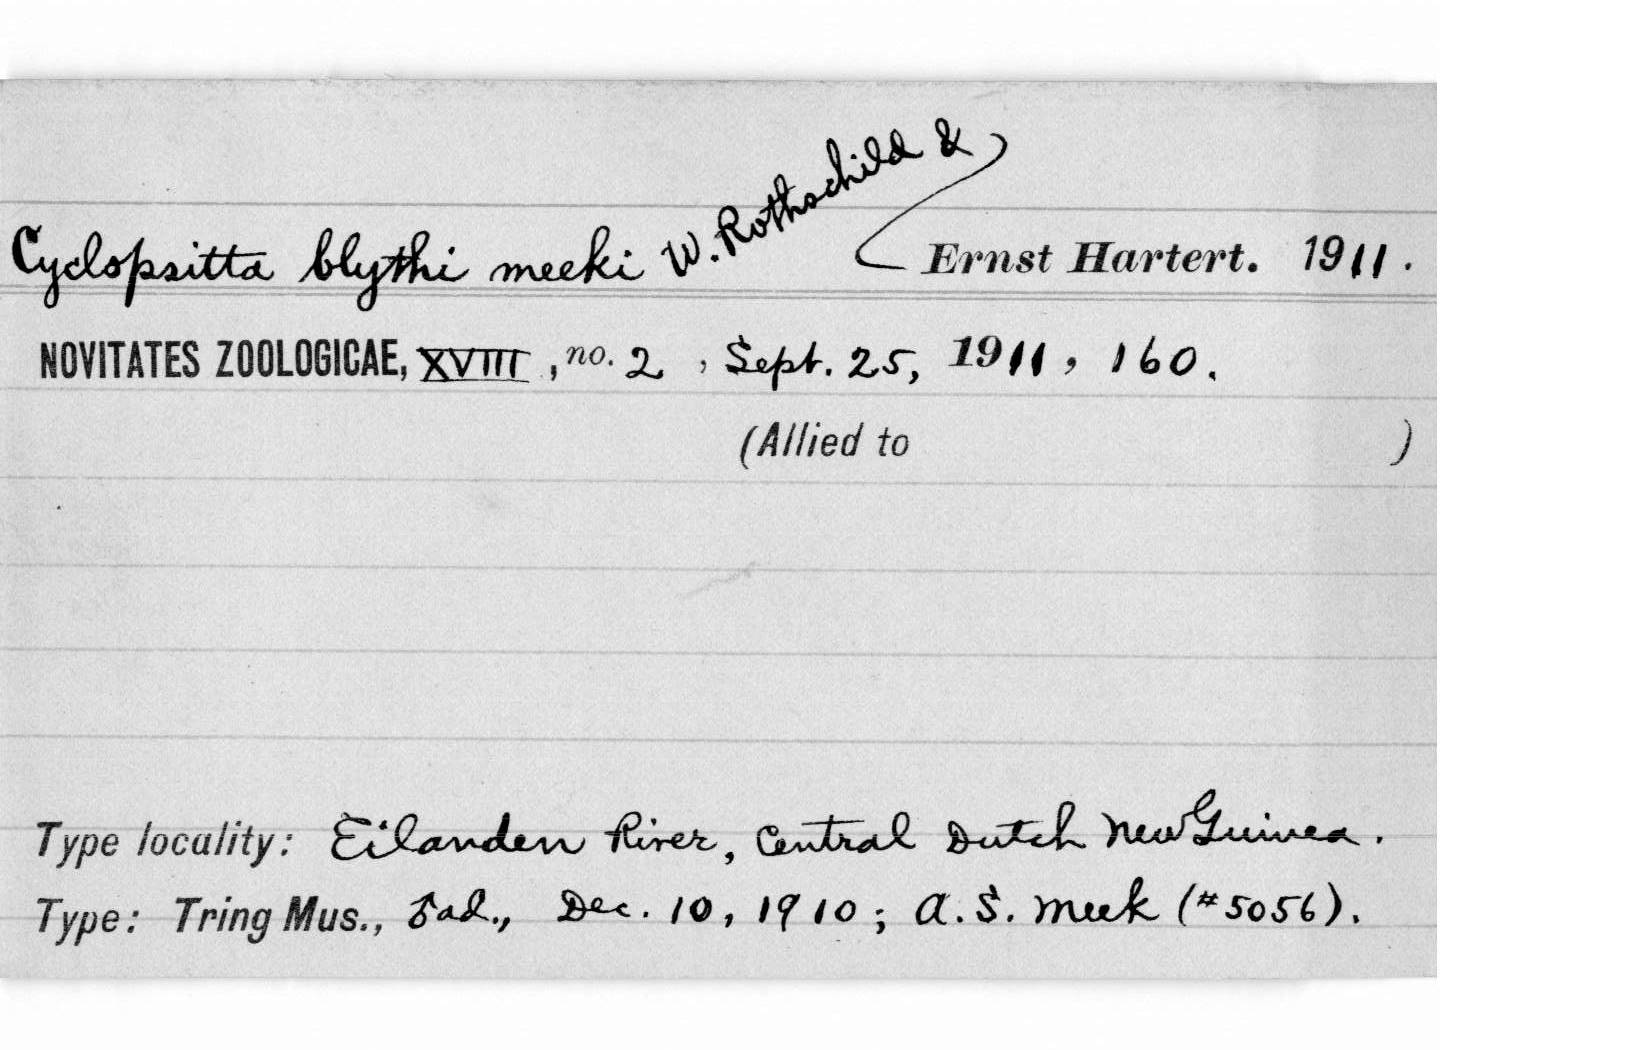 Cyclopsitta blythi meeki W. Rothschild & Ernst Hartert. 1911.
NOVITATES ZOOLOGICAE, XVIII, no. 2, Sept. 25, 1911, 160.
(Allied to )
Type locality: Eilanden River, Central Dutch New Guinea.
Type: Tring Mus., ad., Dec. 10, 1910; A. S. Meek (#5056).